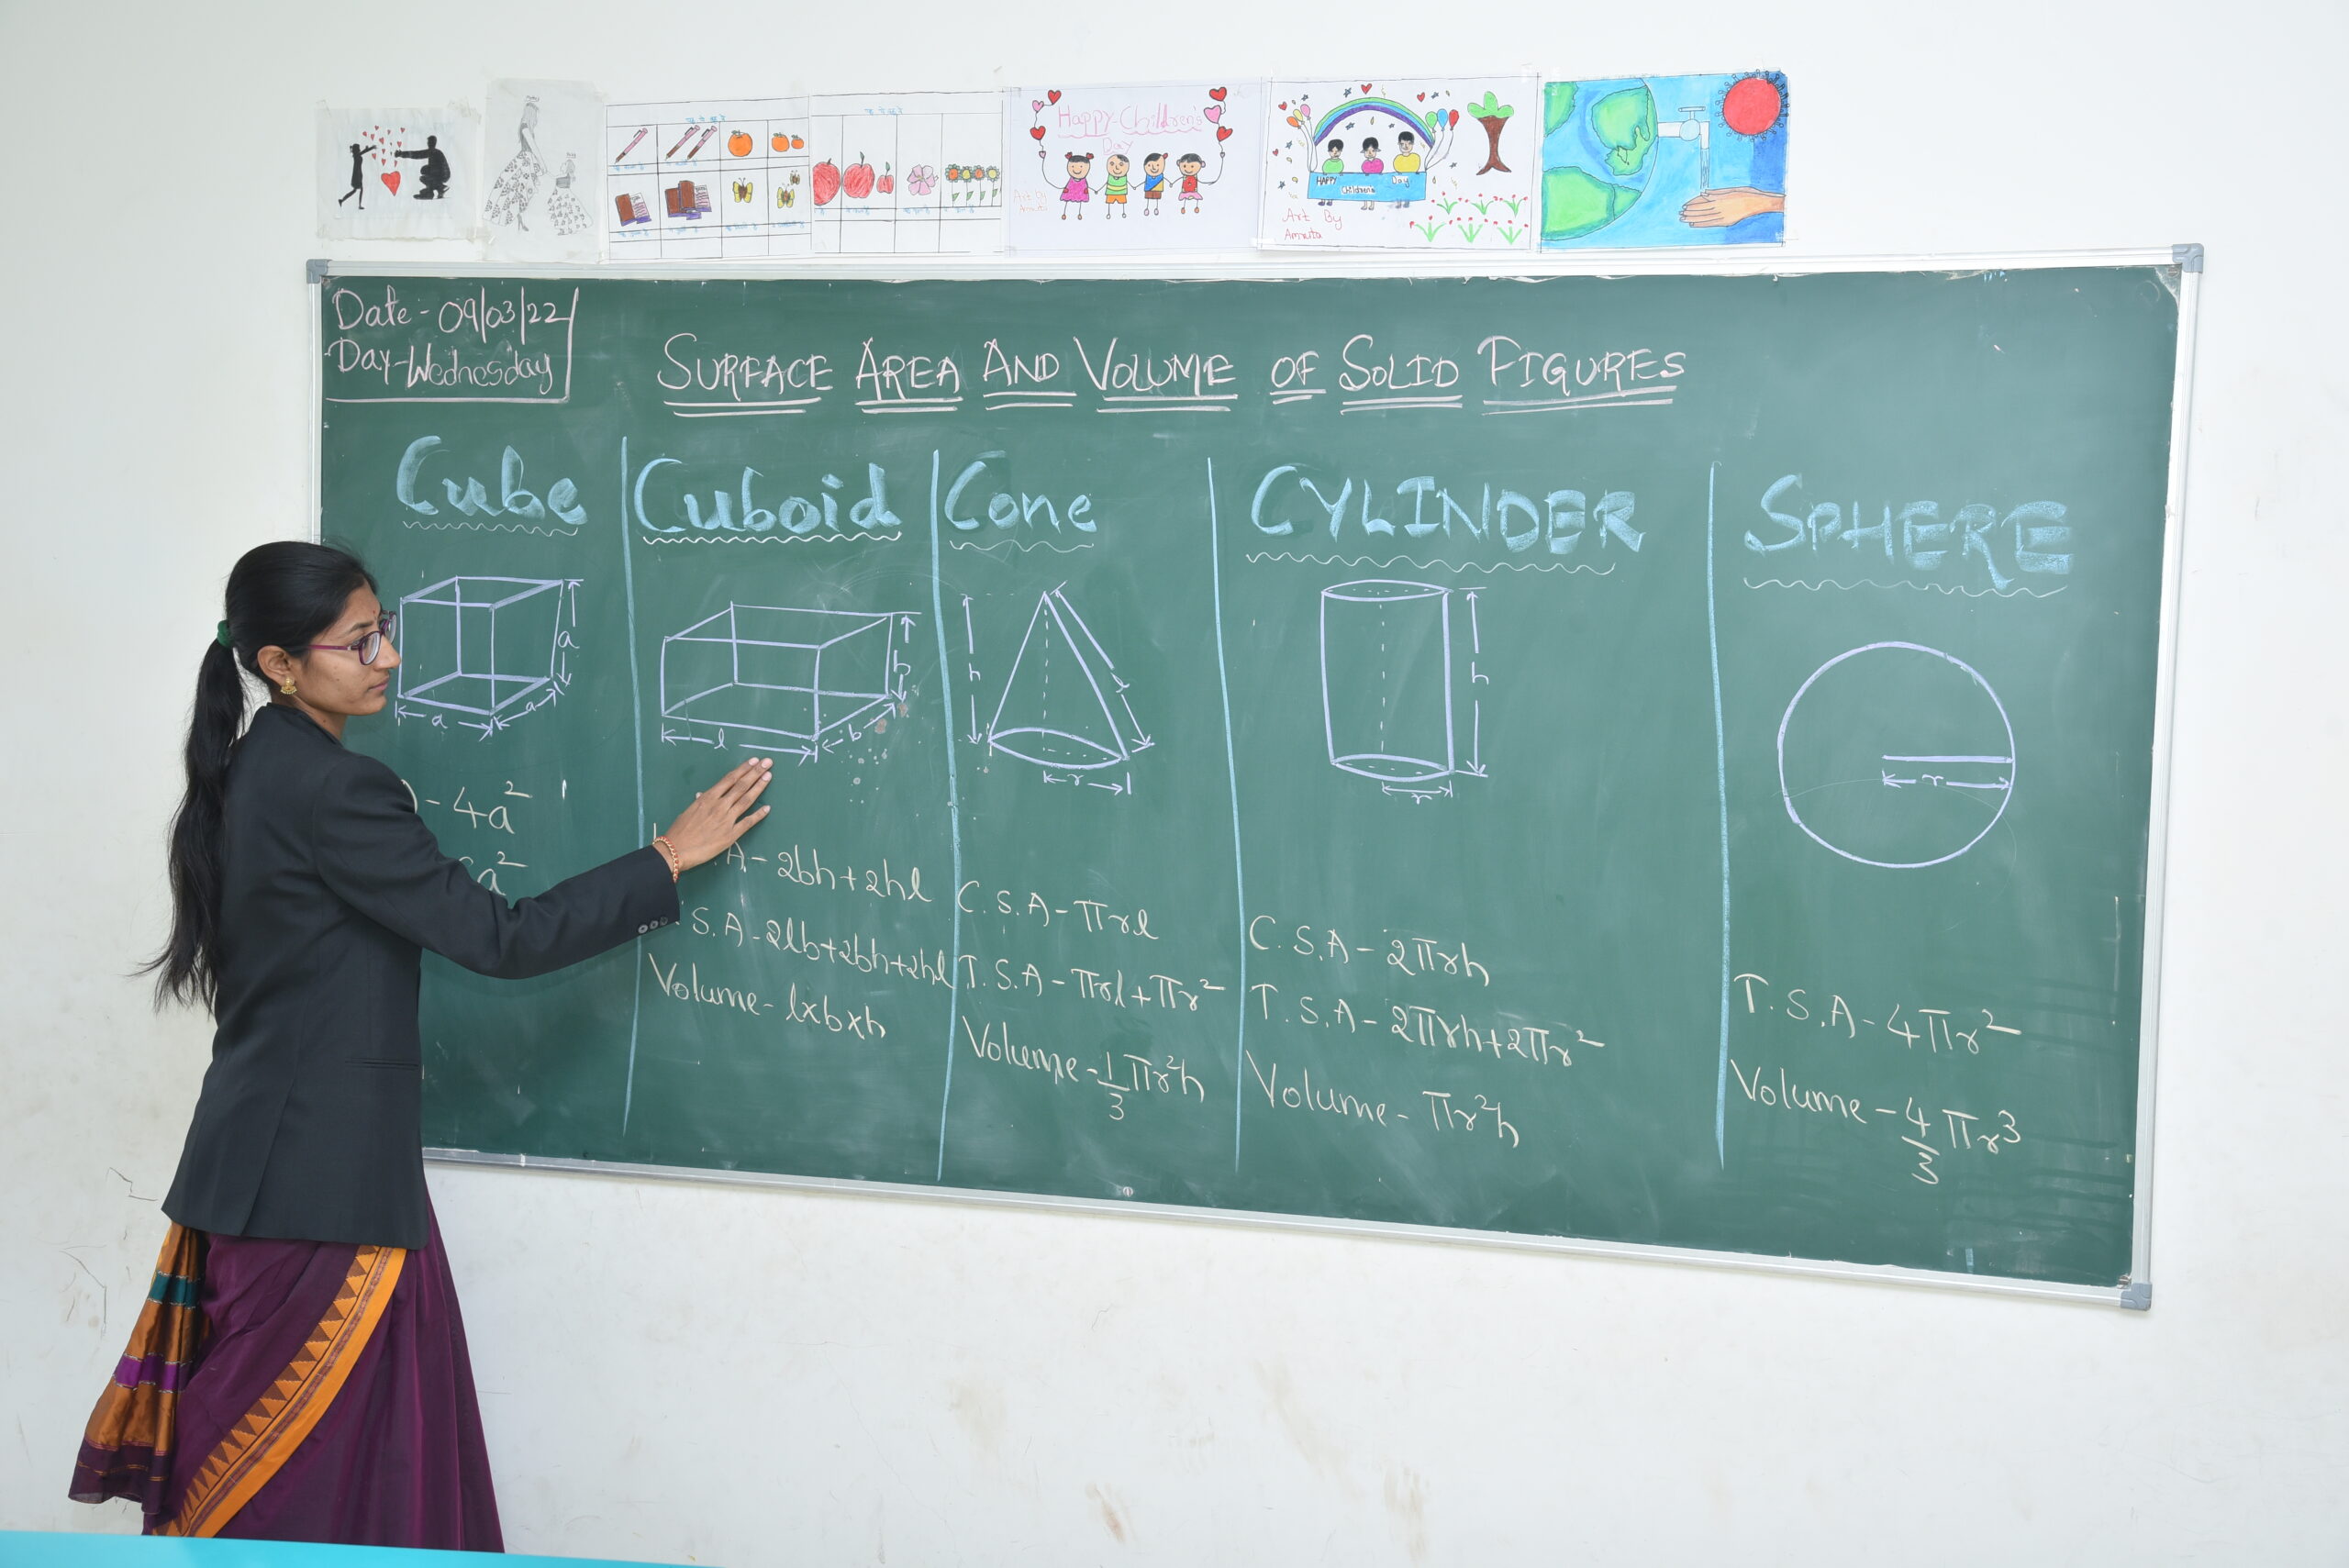 Happy Children's
Day
Art By
Amrita
HAPPY Children's Day
Art By
Amrita
Date - 09/03/22
Day - Wednesday
SURFACE AREA AND VOLUME OF SOLID FIGURES
Cube
a
a
a
) - 4a²
a²
Cuboid
h
l
b
A - 2bh + 2hl
S.A - 2lb + 2bh + 2hl
Volume - l×b×h
Cone
h
l
r
C.S.A - πrl
T.S.A - πrl + πr²
Volume - 1/3 πr²h
CYLINDER
h
r
C.S.A - 2πrh
T.S.A - 2πrh + 2πr²
Volume - πr²h
SPHERE
r
T.S.A - 4πr²
Volume - 4/3 πr³